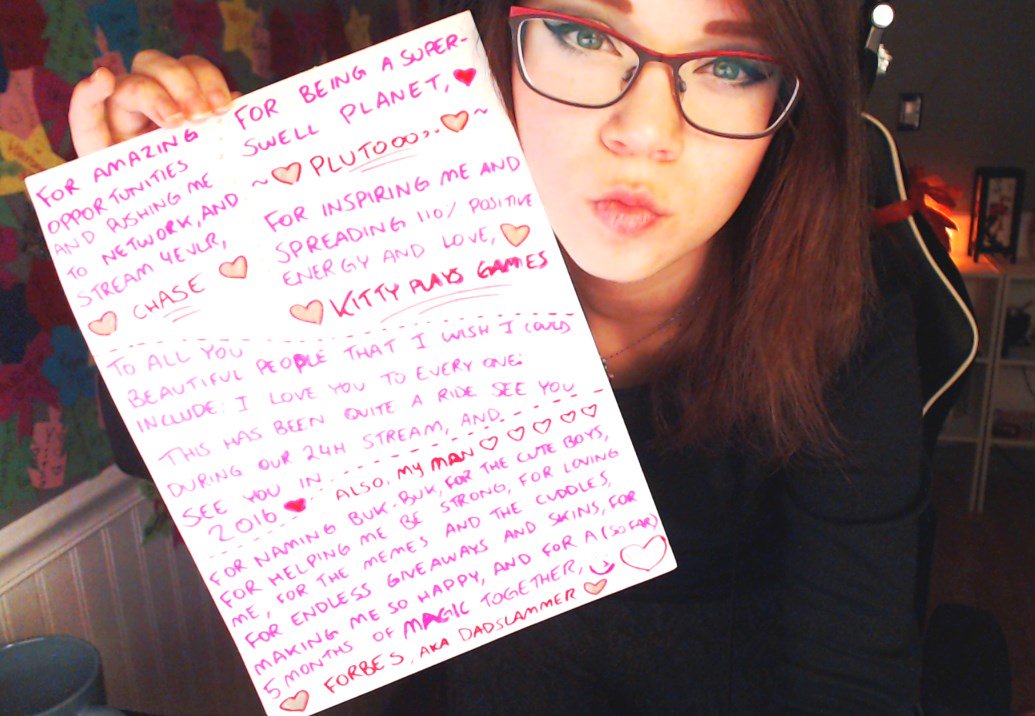 FOR AMAZING
OPPORTUNITIES
AND PUSHING ME
TO NETWORK, AND
STREAM 4EVER,
CHASE
FOR BEING A SUPER-
SWELL PLANET,
~ PLUTOOO ~
FOR INSPIRING ME AND
SPREADING 110% POSITIVE
ENERGY AND LOVE,
KITTY PLAYS GAMES
TO ALL YOU
BEAUTIFUL PEOPLE THAT I WISH I COULD
INCLUDE: I LOVE YOU TO EVERY ONE.
THIS HAS BEEN QUITE A RIDE SEE YOU
DURING OUR 24H STREAM, AND
SEE YOU IN
2016
ALSO, MY MAN
FOR NAMING BUK-BUK, FOR THE CUTE BOYS,
FOR HELPING ME BE STRONG, FOR LOVING
ME, FOR THE MEMES AND THE CUDDLES,
FOR ENDLESS GIVEAWAYS AND SKINS, FOR
MAKING ME SO HAPPY, AND FOR A (SO FAR)
5 MONTHS OF MAGIC TOGETHER,
FORBES, AKA DADSLAMMER